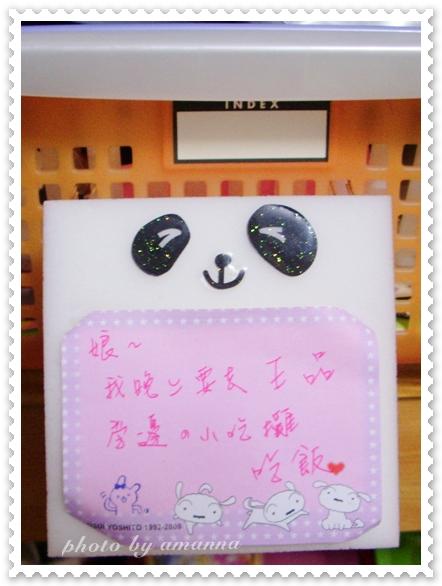 INDEX
娘～
我晚上要去王品
旁邊の小吃攤
吃飯❤
USUI YOSHITO 1992-2009
photo by amanna